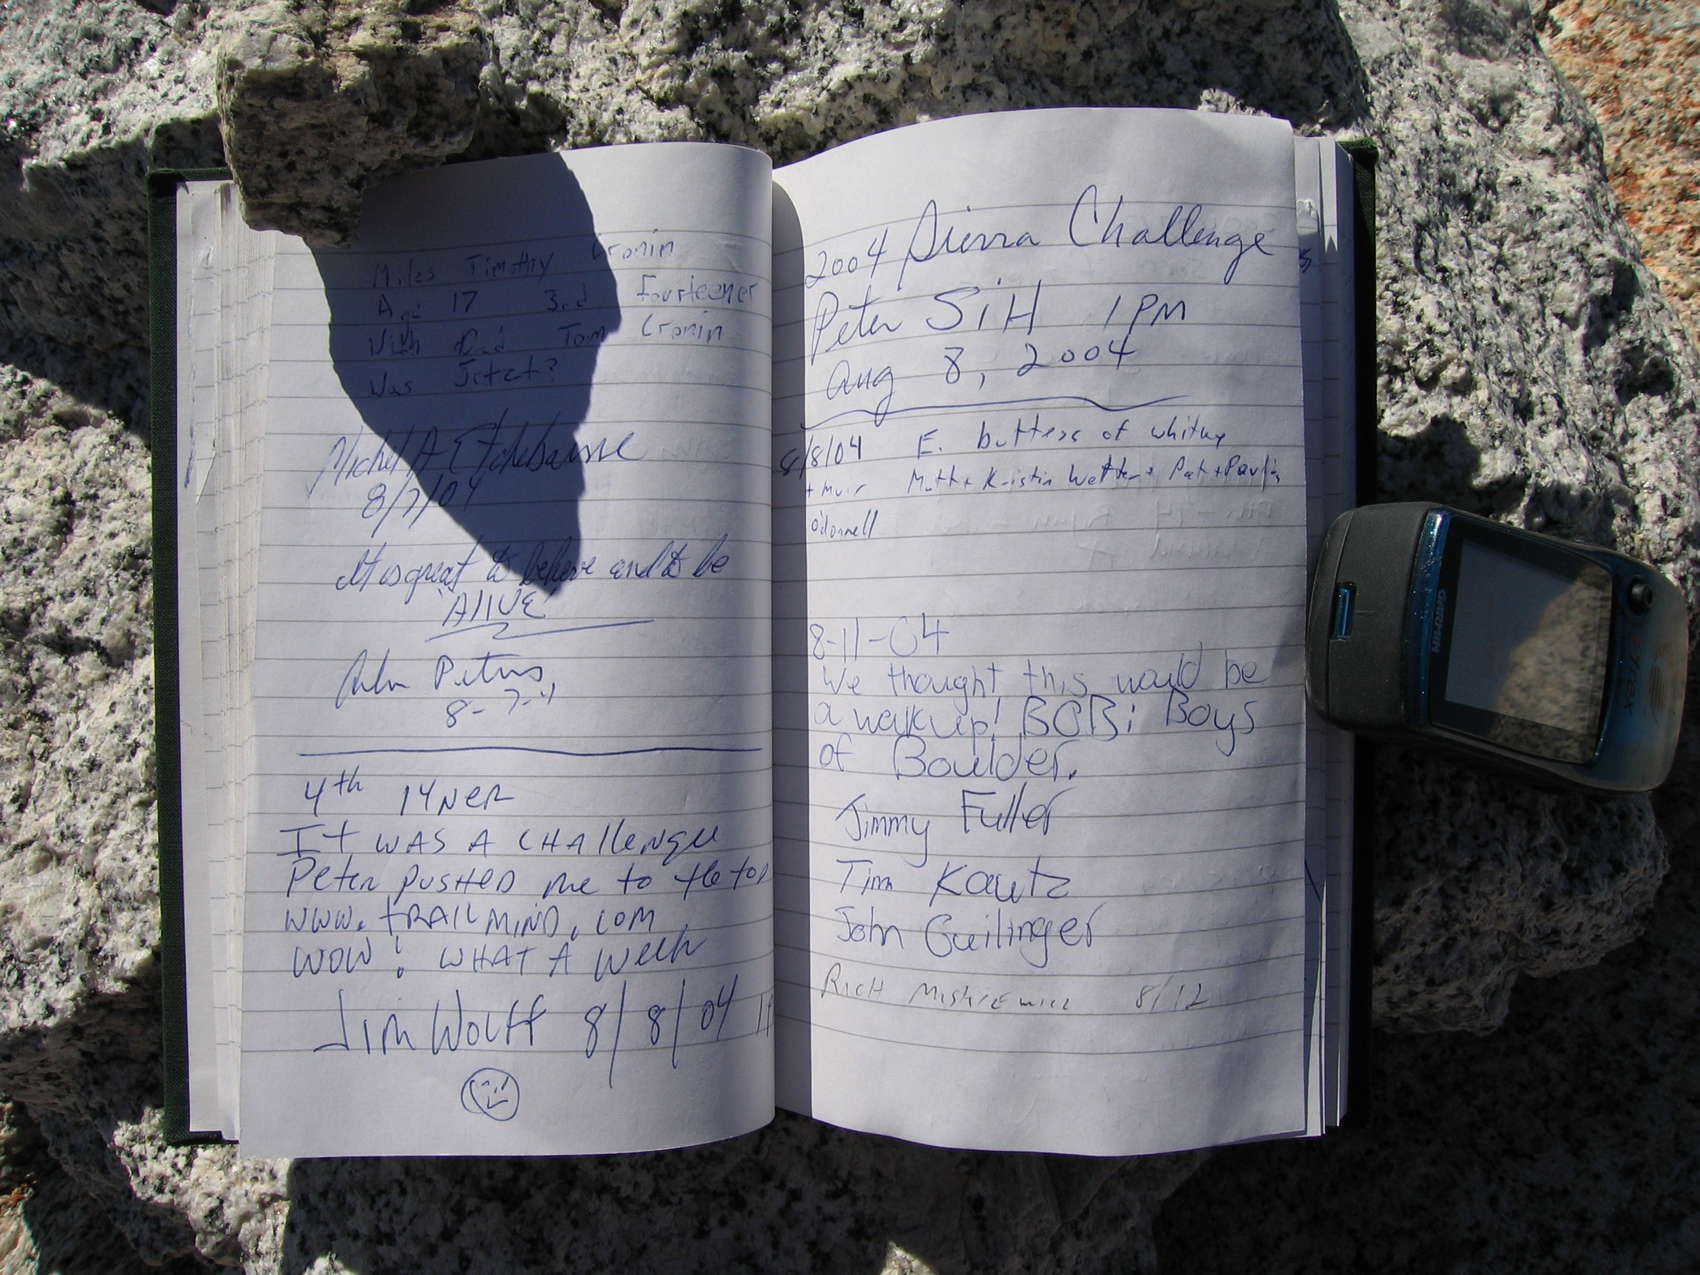 Miles Timothy Cronin
Age 17 3rd Fourteener
With Dad Tom Cronin
Was
8/7/04
It is great to believe and to be
"ALIVE"
Peters
8-7-4
4th 14NER
It WAS A CHAllengE
Peter pusHED me to the top
www.tRAILMIND.com
WOW! WHAT A Week
Jim Wolff 8/8/04
2004 Sierra Challenge
Peter SiH 1 PM
Aug 8, 2004
8/8/04 E. buttess of whitney
+ Muir Matt + Kristin + Pat +
O'donnell
8-11-04
We thought this would be
a walkup! BOBi Boys
of Boulder.
Jimmy Fuller
Tim Kautz
John Geilinger
RICH MISKIEWICZ 8/12
GARMIN